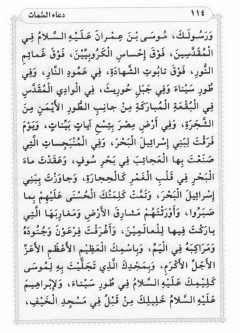 ١١٤
دعاء السمات
وَرَسُولِكَ، مُوسَى بْنِ عِمْرانَ عَلَيْهِ السَّلامُ فِي
الْمُقَدَّسِينَ، فَوْقَ إِحْساسِ الْكَرُوبِيِّينَ، فَوْقَ غَمائِمِ
النُّورِ، فَوْقَ تابُوتِ الشَّهادَةِ، فِي عَمُودِ النّارِ، وَفِي
طُورِ سَيْناءَ وَفِي جَبَلِ حُورِيثَ، فِي الْوادِي الْمُقَدَّسِ
فِي الْبُقْعَةِ الْمُبارَكَةِ مِنْ جانِبِ الطُّورِ الْأَيْمَنِ مِنَ
الشَّجَرَةِ، وَفِي أَرْضِ مِصْرَ بِتِسْعِ آياتٍ بَيِّناتٍ، وَيَوْمَ
فَرَقْتَ لِبَنِي إِسْرائِيلَ الْبَحْرَ، وَفِي الْمُنْبَجِساتِ الَّتِي
صَنَعْتَ بِهَا الْعَجائِبَ فِي بَحْرِ سُوفٍ، وَعَقَدْتَ ماءَ
الْبَحْرِ فِي قَلْبِ الْغَمْرِ كَالْحِجارَةِ، وَجاوَزْتَ بِبَنِي
إِسْرائِيلَ الْبَحْرَ، وَتَمَّتْ كَلِمَتُكَ الْحُسْنى عَلَيْهِمْ بِما
صَبَرُوا، وَأَوْرَثْتَهُمْ مَشارِقَ الْأَرْضِ وَمَغارِبَهَا الَّتِي
بارَكْتَ فِيها لِلْعالَمِينَ، وَأَغْرَقْتَ فِرْعَوْنَ وَجُنُودَهُ
وَمَراكِبَهُ فِي الْيَمِّ، وَبِاسْمِكَ الْعَظِيمِ الْأَعْظَمِ الْأَعَزِّ
الْأَجَلِّ الْأَكْرَمِ، وَبِمَجْدِكَ الَّذِي تَجَلَّيْتَ بِهِ لِمُوسى
كَلِيمِكَ عَلَيْهِ السَّلامُ فِي طُورِ سَيْناءَ، وَلِإِبْراهِيمَ
عَلَيْهِ السَّلامُ خَلِيلِكَ مِنْ قَبْلُ فِي مَسْجِدِ الْخَيْفِ،